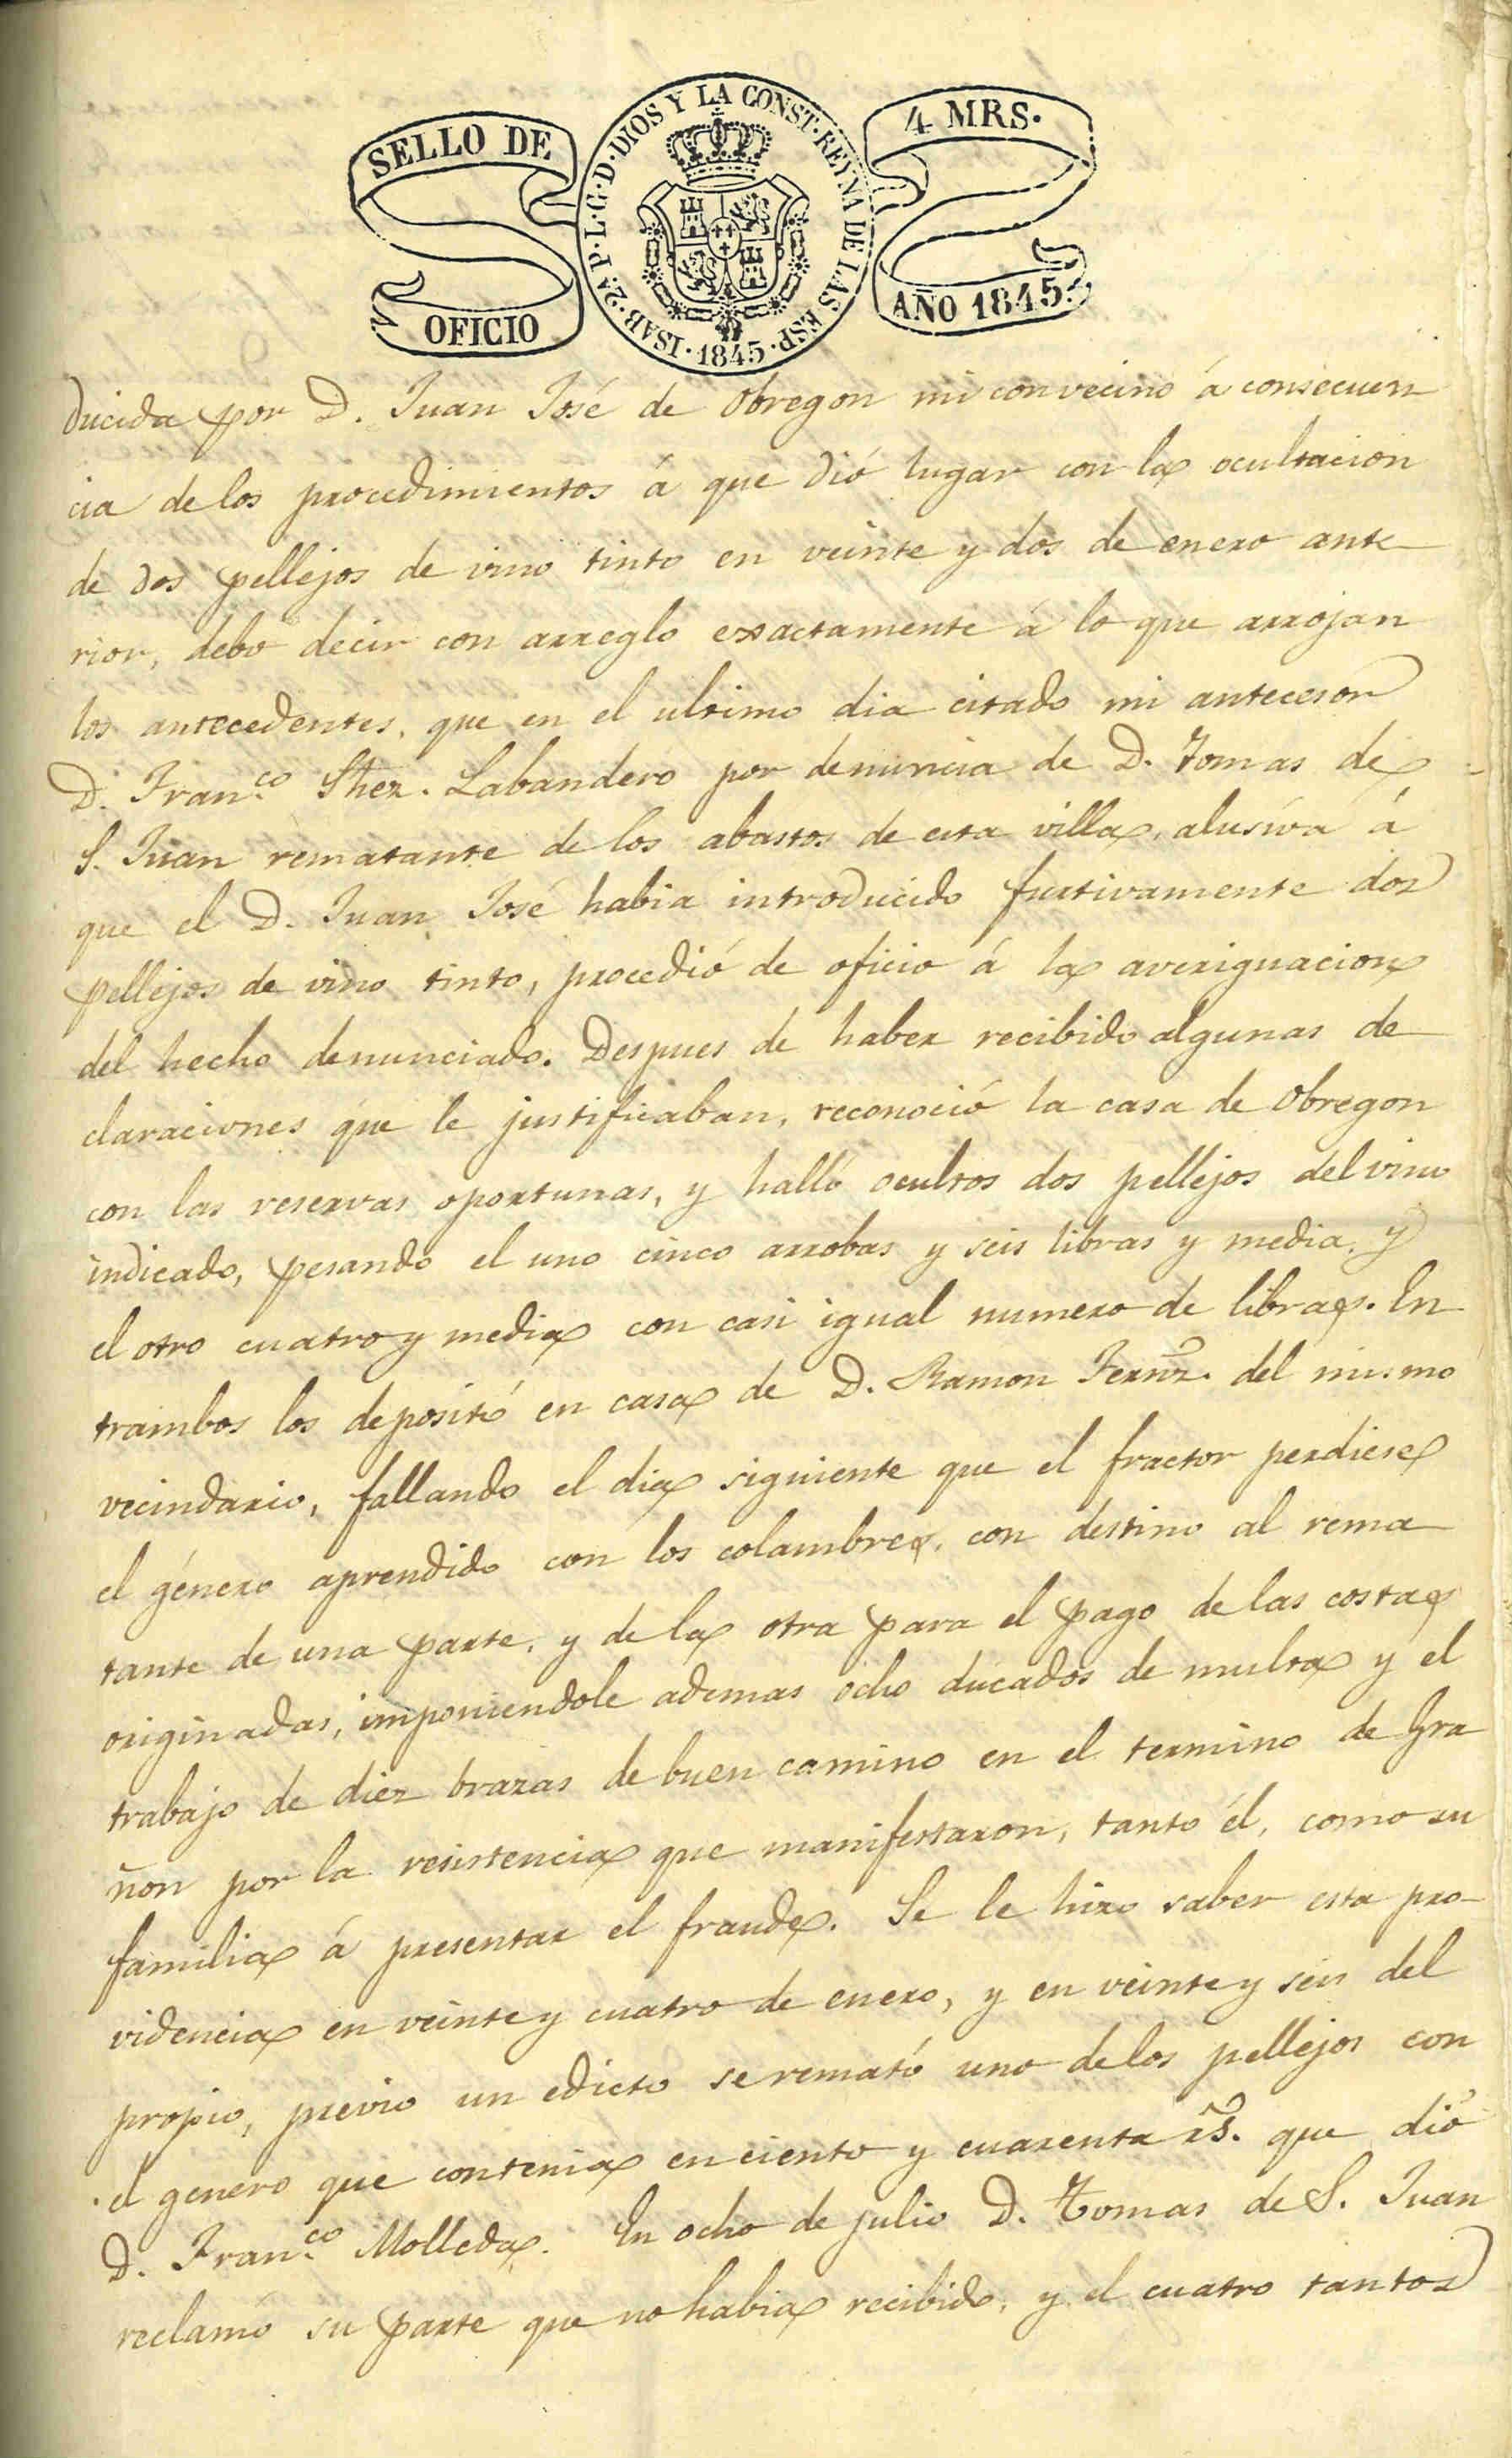 SELLO DE
OFICIO
ISAB. 2ª P. L. G. D. DIOS Y LA CONST. REYNA DE LAS ESP. 1845.
4 MRS.
AÑO 1845.
ducida por D. Juan José de Obregon mi convecino á consecuen
cia de los procedimientos á que dió lugar con la ocultacion
de dos pellejos de vino tinto en veinte y dos de enero ante
rior, debo decir con arreglo exsactamente á lo que arrojan
los antecedentes, que en el ultimo dia citado mi antecesor
D. Fran.co Shez. Labandero por denuncia de D. Tomas de
S. Juan rematante de los abastos de esta villa, alusiva á
que el D. Juan José habia introducido furtivamente dos
pellejos de vino tinto, procedió de oficio á la averiguacion
del hecho denunciado. Despues de haber recibido algunas de
claraciones que le justificaban, reconoció la casa de Obregon
con las reservas oportunas, y halló ocultos dos pellejos del vino
indicado, pesando el uno cinco arrobas y seis libras y media, y
el otro cuatro y media con casi igual numero de libras. En
trambos los depositó en casa de D. Ramon Fernz. del mismo
vecindario, fallando el dia siguiente que el fractor perdiese
el género aprendido con los colambres, con destino al rema
tante de una parte, y de la otra para el pago de las costas
originadas, imponiendole ademas ocho ducados de multa y el
trabajo de diez brazas de buen camino en el termino de Gra
ñon por la resistencia que manifestaron, tanto él, como su
familia á presentar el fraude. Se le hizo saber esta pro-
videncia en veinte y cuatro de enero, y en veinte y seis del
propio, previo un edicto se remató uno de los pellejos con
el genero que contenia en ciento y cuarenta rs. que dió
D. Fran.co Molleda. En ocho de julio D. Tomas de S. Juan
reclamó su parte que no habia recibido, y el cuatro tantos